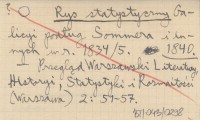 Rys statystyczny Ga-
licyi podług Sommera i in-
nych w r. 1834/5. 1840.
Przegląd Warszawski Literatury
Historyi, Statystyki i Rozmaitości
(Warszawa) 2: 51-57.